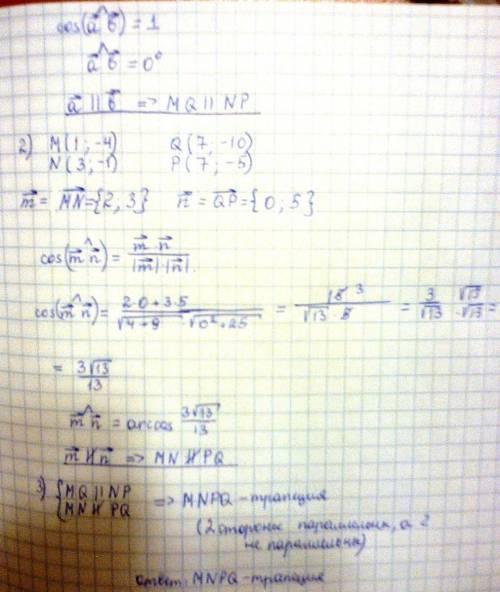 cos(a⃗ ^ b⃗) = 1
a⃗ ^ b⃗ = 0°
a⃗ || b⃗ => MQ || NP
2) M(1; -4) Q(7; -10)
N(3; -1) P(7; -5)
m⃗ = MN⃗ = {2; 3} n⃗ = QP⃗ = {0; 5}
cos(m⃗ ^ n⃗) = m⃗ · n⃗ / |m⃗| · |n⃗|.
cos(m⃗ ^ n⃗) = 2·0+3·5 / √4+9 · √0²+25 = 15 3 / √13 · 5 = 3/√13 · √13/√13 =
= 3√13/13
m⃗ ^ n⃗ = arccos 3√13/13
m⃗ ∦ n⃗ => MN ∦ PQ
3) { MQ || NP
MN ∦ PQ => MNPQ - трапеция
(2 стороны параллельны, а 2
не параллельны)
ответ: MNPQ - трапеция